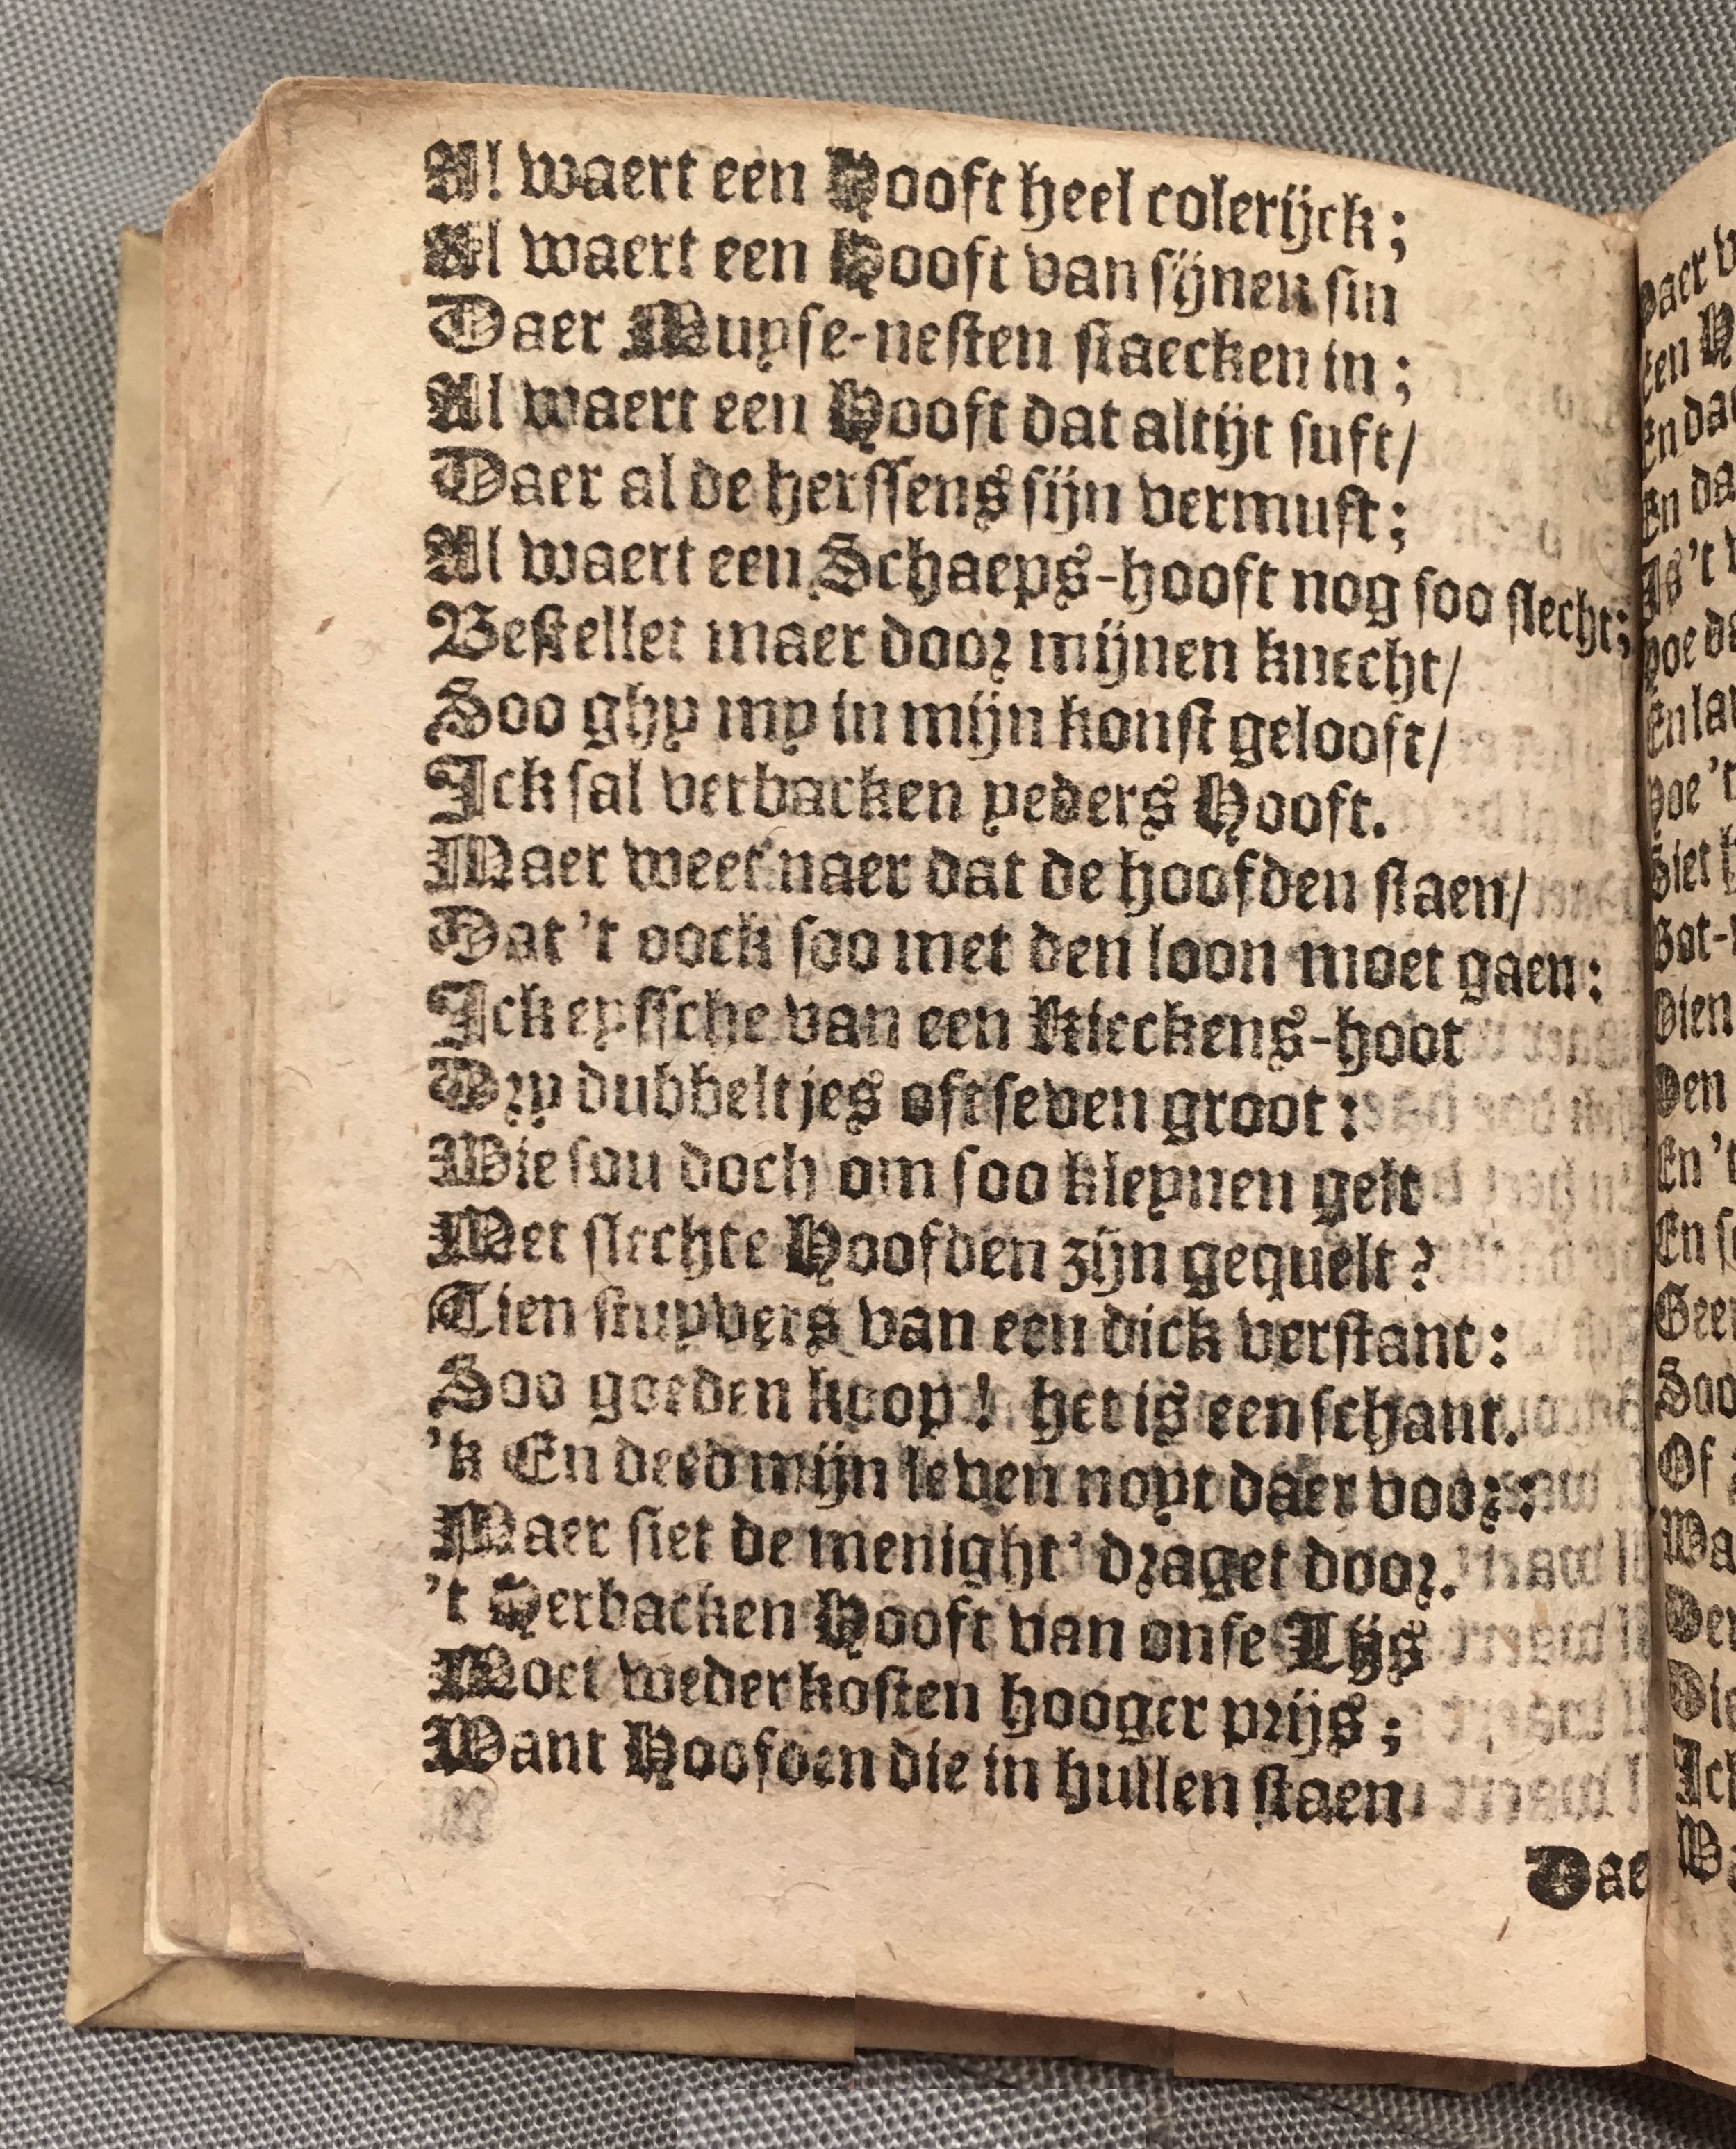 Al waert een Hooft heel colerijck;
Al waert een Hooft van sijnen sin
Daer Muyse-nesten staecken in;
Al waert een Hooft dat altijt suft/
Daer al de herssens sijn vermuft;
Al waert een Schaeps-hooft nog soo slecht;
Bestellet maer door mijnen knecht/
Soo ghy my in mijn konst gelooft/
Ick sal verbacken yeders Hooft.
Maer weet naer dat de hoofden staen/
Dat 't oock soo met den loon moet gaen:
Ick eyssche van een Kieckens-hoot
Dry dubbeltjes oft seven groot:
Wie sou doch om soo kleynen gelt
Met slechte Hoofden zijn gequelt?
Tien stuyvers van een dick verstant:
Soo goeden koop! het is een schant.
'k En deed mijn leven noyt daer voor:
Maer siet de menight' draget door.
't Herbacken Hooft van onse Lijs
Moet weder kosten hooger prijs;
Want Hoofden die in hullen staen
Dae
Daer
een H
En dat
En da
Is 't
hoe da
En la
hoe 't
Siet h
Got-
Dien
Den
En 't
En s
Geen
Soo
Of
Wa
Den
Die
Ick
Wa